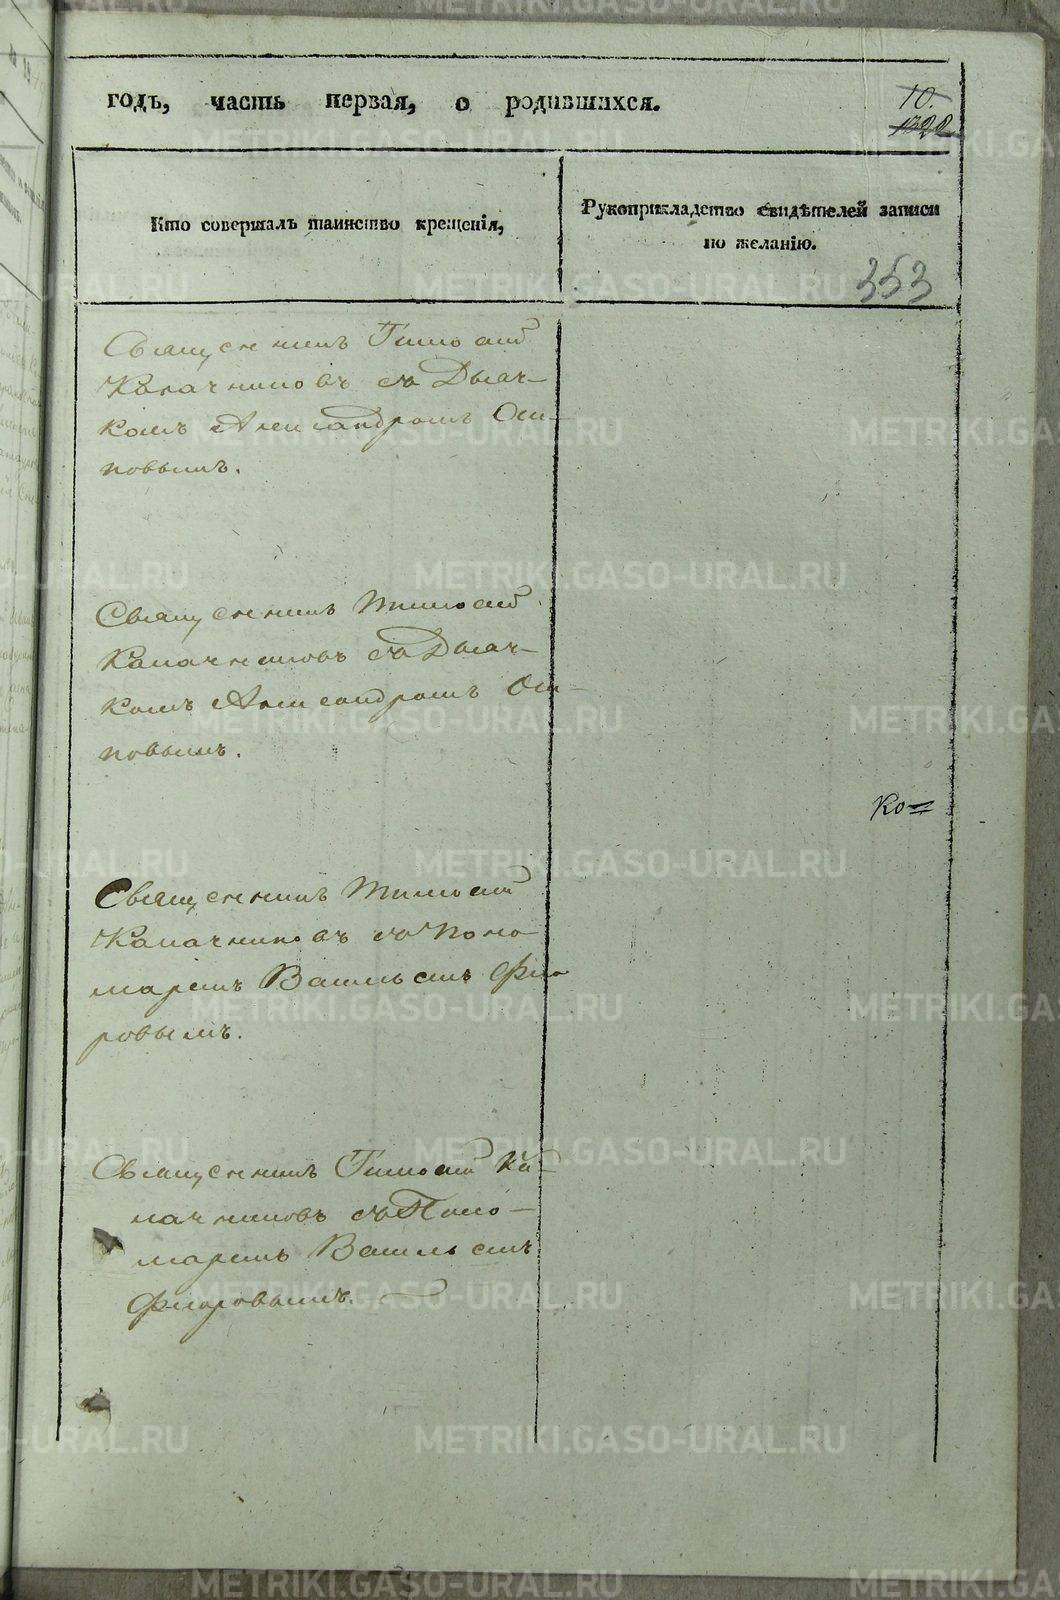 годъ, часть первая, о родившихся.
10.
Кто совершалъ таинство крещенія,
Рукоприкладство свидѣтелей записи
по желанію.
353
Священникъ Тимоѳей
Калачниковъ съ Дьяч-
комъ Александромъ Оси-
повымъ.
Священникъ Тимоѳей
Калачниковъ съ Дьяч-
комъ Александромъ Оси-
повымъ.
Ко=
Священникъ Тимоѳей
Калачниковъ съ Поно
маремъ Васильемъ Фло
ровымъ.
Священникъ Тимоѳей Ка-
лачниковъ съ Поно-
маремъ Васильемъ
Флоровымъ.
METRIKI.GASO-URAL.RU